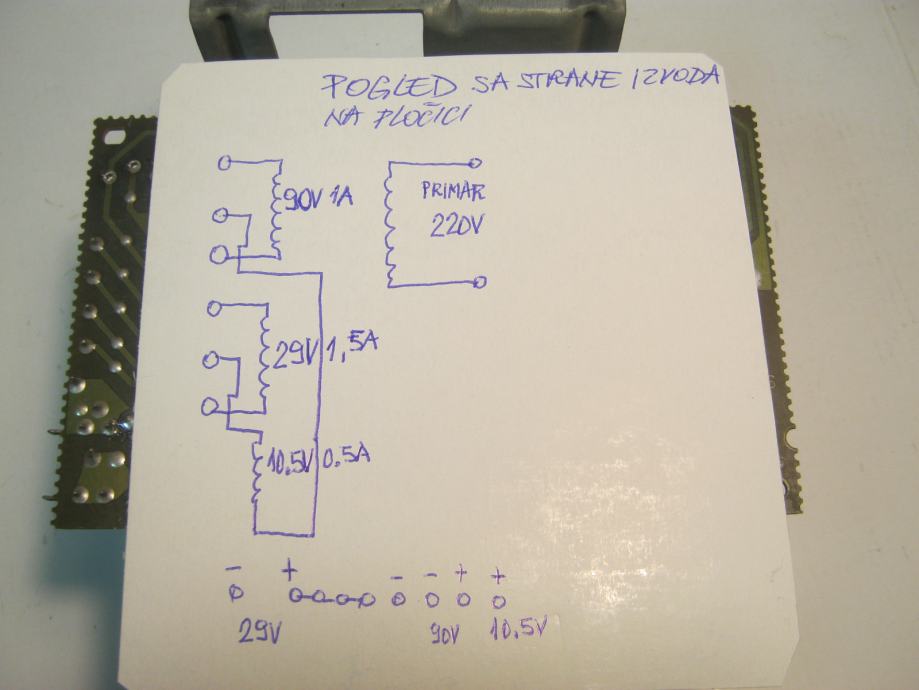 POGLED SA STRANE IZVODA
NA PLOČICI
90V 1A
PRIMAR
220V
29V 1,5A
10.5V 0.5A
- + - - + +
29V 90V 10.5V